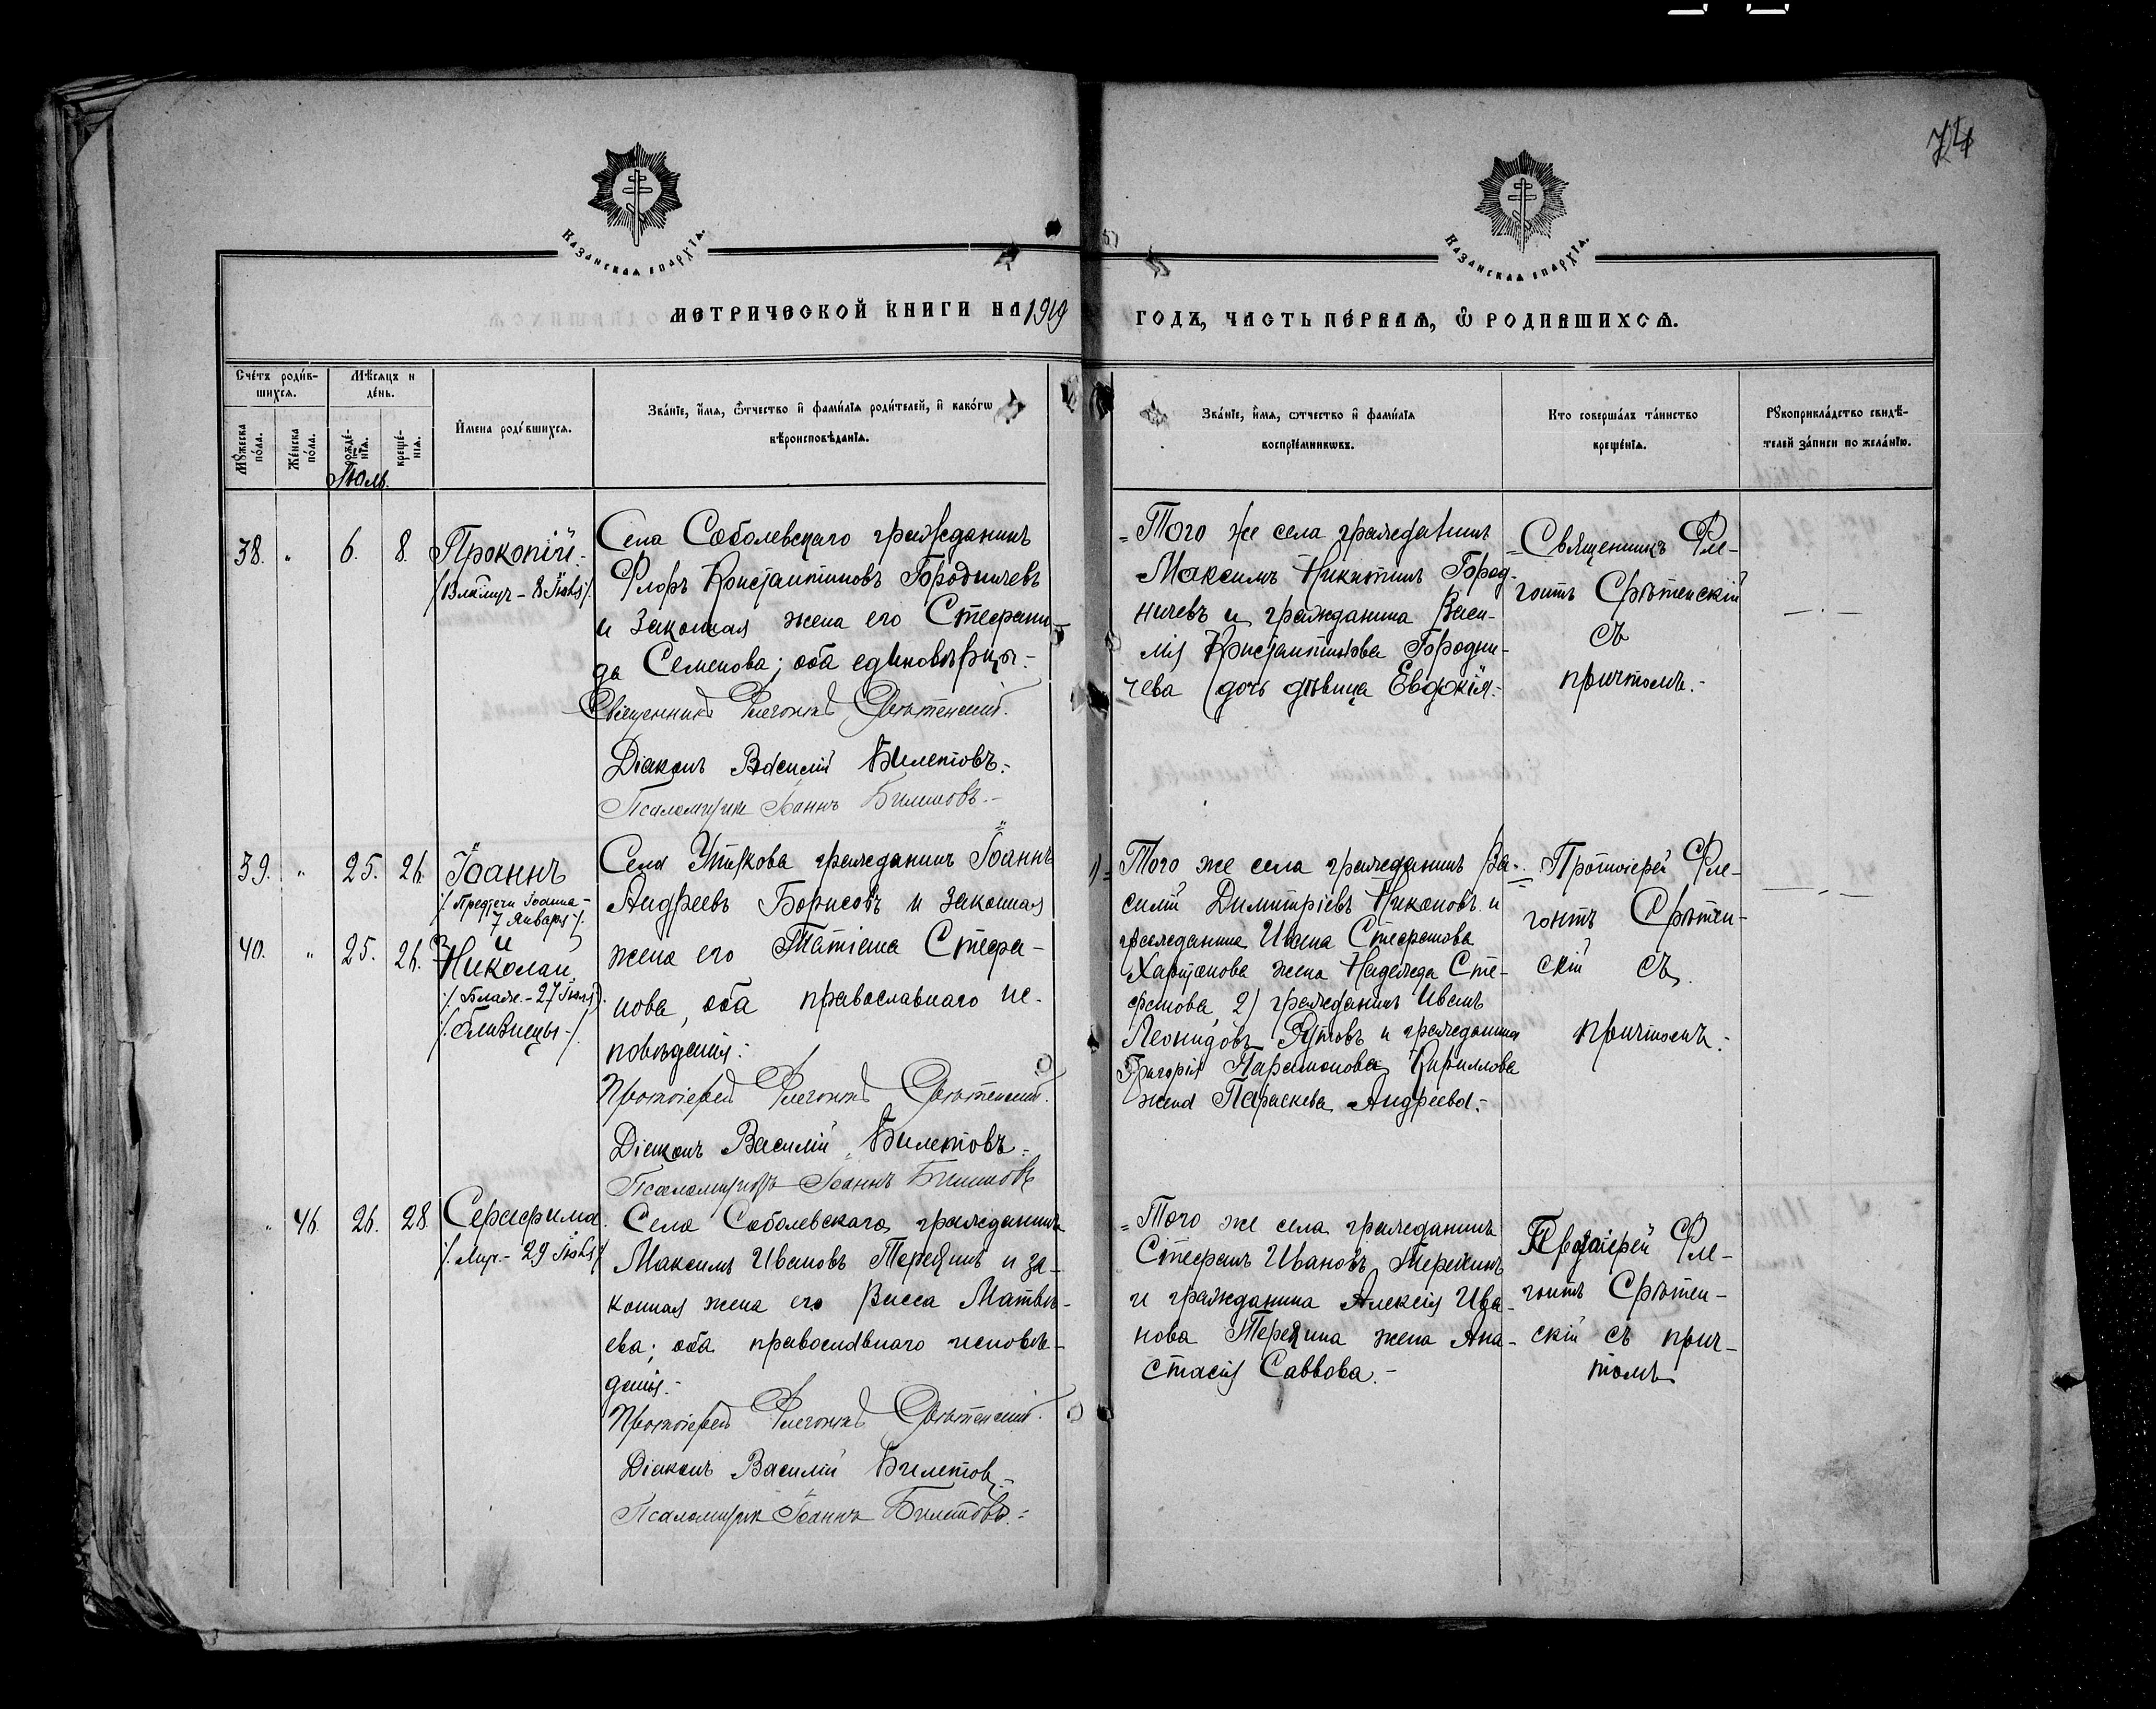 74
Казанская епархїѧ.
Казанская епархїѧ.
МЕТРИЧЕСКОЙ КНИГИ НА 1919
ГОДЪ, ЧАСТЬ ПЕ́РВАѦ, Ѿ РОДИВШИХСѦ.
Сче́тъ роди́в-
шихсѧ.
Мѣ́сѧцъ и
де́нь.
Мꙋ́жеска по́ла.
Же́нска по́ла.
рожде́-нїѧ.
креще́-нїѧ.
Июль.
И҆мена роди́вшихсѧ.
Зва́нїе, и҆́мѧ, ѻ҆́тчество и҆ фами́лїѧ роди́телей, и҆ како́гѡ
вѣроисповѣ́данїѧ.
Зва́нїе, и҆́мѧ, ѻтчество и҆ фами́лїѧ
воспрїе́мникѡвъ.
Кто соверша́лъ та́инство
креще́нїѧ.
Рꙋкоприкла́дство свидѣ́-
телей за́писи по жела́нїю.
38. " 6. 8. Прокопій.
Села Соболевскаго гражданинъ
Флоръ Константиновъ Городничевъ
и законная жена его Стефани-
да Семенова; оба единовѣрцы.-
Священникъ Флегонтъ Срѣтенскій.
Діаконъ Василій Билетовъ.-
Псаломщикъ Іоаннъ Билетовъ.-
= Того же села гражданинъ
Максимъ Никитинъ Город-
ничевъ и гражданина Васи-
лія Константинова Городни-
чева дочь дѣвица Евдокія.-
= Священникъ Фле-
гонтъ Срѣтенскій
съ
причтомъ.-
39. " 25. 26. Іоаннъ
/. Предтечи Іоанна -
7 Января /.
и
40. " 25. 26. Николай.
/. Блаж. - 27 Іюля /.
/. близнецы - /.
Села Утякова гражданинъ Іоаннъ
Андреевъ Борисовъ и законная
жена его Татіана Стефа-
нова, оба православнаго ис-
повѣданія.-
Протоіерей Флегонтъ Срѣтенскій.
Діаконъ Василій Билетовъ.-
Псаломщикъ Іоаннъ Билетовъ
1) = Того же села гражданинъ Ва-
силій Димитріевъ Никоновъ и
гражданина Ивана Стефанова
Харитонова жена Надежда Сте-
фанова, 2) гражданинъ Иванъ
Леонидовъ и гражданина
Григорія Парамонова Кириллова
жена Параскева Андреева.-
= Протоіерей Фле-
гонтъ Срѣтен-
скій съ
причтомъ.-
" 46. 26. 28. Серафима.
/. Муч. - 29 /.
Села Соболевскаго гражданинъ
Максимъ Ивановъ Терехинъ и за-
конная жена его Васса Матвѣ-
ева; оба православнаго исповѣ-
данія.-
Протоіерей Флегонтъ Срѣтенскій.
Діаконъ Василій Билетовъ.-
Псаломщикъ Іоаннъ Билетовъ.-
= Того же села гражданинъ
Стефанъ Ивановъ Терехинъ
и гражданина Алексія Ива-
нова Терехина жена Ана-
стасія Саввова.-
Протоіерей Фле-
гонтъ Срѣтен-
скій съ прич-
томъ